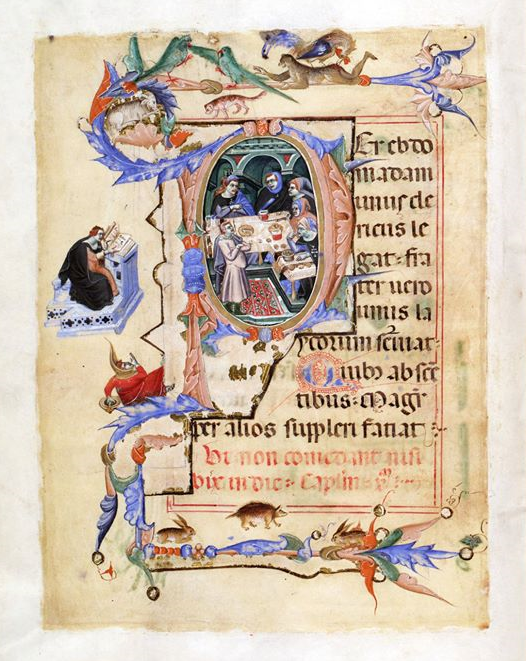 PEr ebdo
madam
unus cle
ricus le
gat: fra
ter uero
unus la
ycorum seruiat:
Quib' absce
tibus: Magr
per alios suppleri faciat:
Ut non comedant nisi
bix in die: Caplm